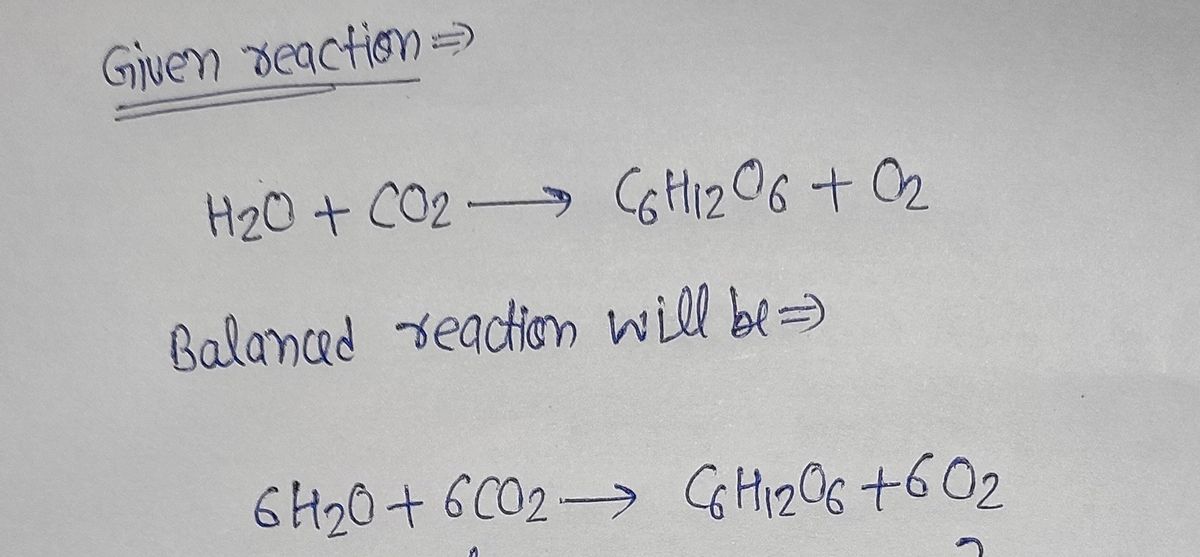 Given reaction ⇒
H2O + CO2 → C6H12O6 + O2
Balanced reaction will be ⇒
6H2O + 6CO2 → C6H12O6 + 6O2